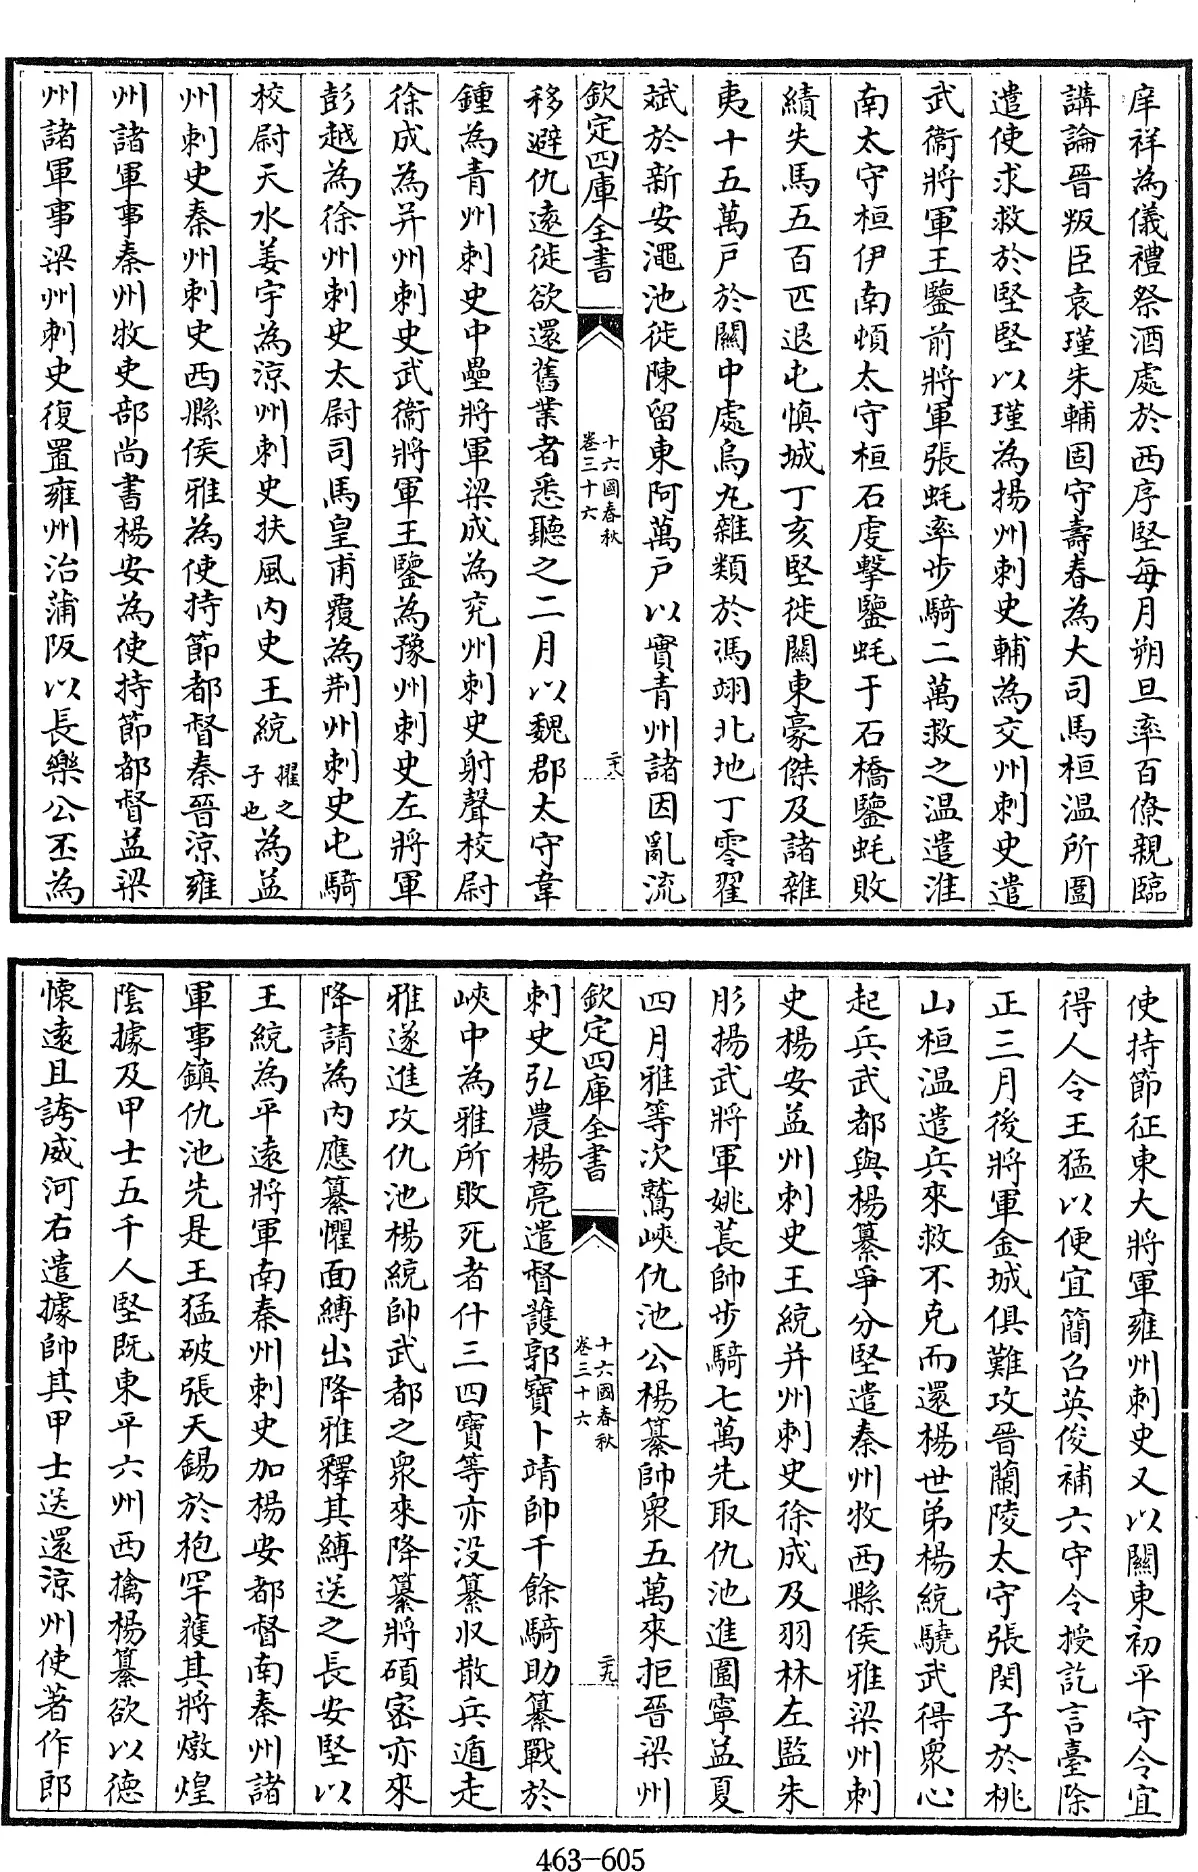 庠祥為儀禮祭酒處於西序堅每月朔旦率百僚親臨
講論晉叛臣袁瑾朱輔固守壽春為大司馬桓温所圍
遣使求救於堅堅以瑾為揚州刺史輔為交州刺史遣
武衞將軍王鑒前將軍張蚝率步騎二萬救之温遣淮
南太守桓伊南頓太守桓石虔擊鑒蚝于石橋鑒蚝敗
績失馬五百匹退屯慎城丁亥堅徙關東豪傑及諸雜
夷十五萬戶於關中處烏丸雜類於馮翊北地丁零翟
斌於新安澠池徙陳留東阿萬戶以實青州諸因亂流
欽定四庫全書
十六國春秋
卷三十六
二十八
移避仇遠徙欲還舊業者悉聽之二月以魏郡太守韋
鍾為青州刺史中壘將軍梁成為兖州刺史射聲校尉
徐成為并州刺史武衞將軍王鑒為豫州刺史左將軍
彭越為徐州刺史太尉司馬皇甫覆為荆州刺史屯騎
校尉天水姜宇為涼州刺史扶風內史王統擢之子也為益
州刺史秦州刺史西縣侯雅為使持節都督秦晉涼雍
州諸軍事秦州牧吏部尚書楊安為使持節都督益梁
州諸軍事梁州刺史復置雍州治蒲阪以長樂公丕為
使持節征東大將軍雍州刺史又以關東初平守令宜
得人令王猛以便宜簡召英俊補六守令授訖言臺除
正三月後將軍金城俱難攻晉蘭陵太守張閔子於桃
山桓温遣兵來救不克而還楊世弟楊統驍武得眾心
起兵武都與楊纂爭分堅遣秦州牧西縣侯雅梁州刺
史楊安益州刺史王統并州刺史徐成及羽林左監朱
肜揚武將軍姚萇帥步騎七萬先取仇池進圖寧益夏
四月雅等次鷲峽仇池公楊纂帥衆五萬來拒晉梁州
欽定四庫全書
十六國春秋
卷三十六
二十九
刺史弘農楊亮遣督護郭寶卜靖帥千餘騎助纂戰於
峽中為雅所敗死者什三四寶等亦没纂収散兵遁走
雅遂進攻仇池楊統帥武都之衆來降纂將碩密亦來
降請為內應纂懼面縛出降雅釋其縛送之長安堅以
王統為平遠將軍南秦州刺史加楊安都督南秦州諸
軍事鎮仇池先是王猛破張天錫於枹罕獲其將燉煌
陰據及甲士五千人堅既東平六州西擒楊纂欲以德
懷遠且誇威河右遣據帥其甲士送還涼州使著作郎
463-605